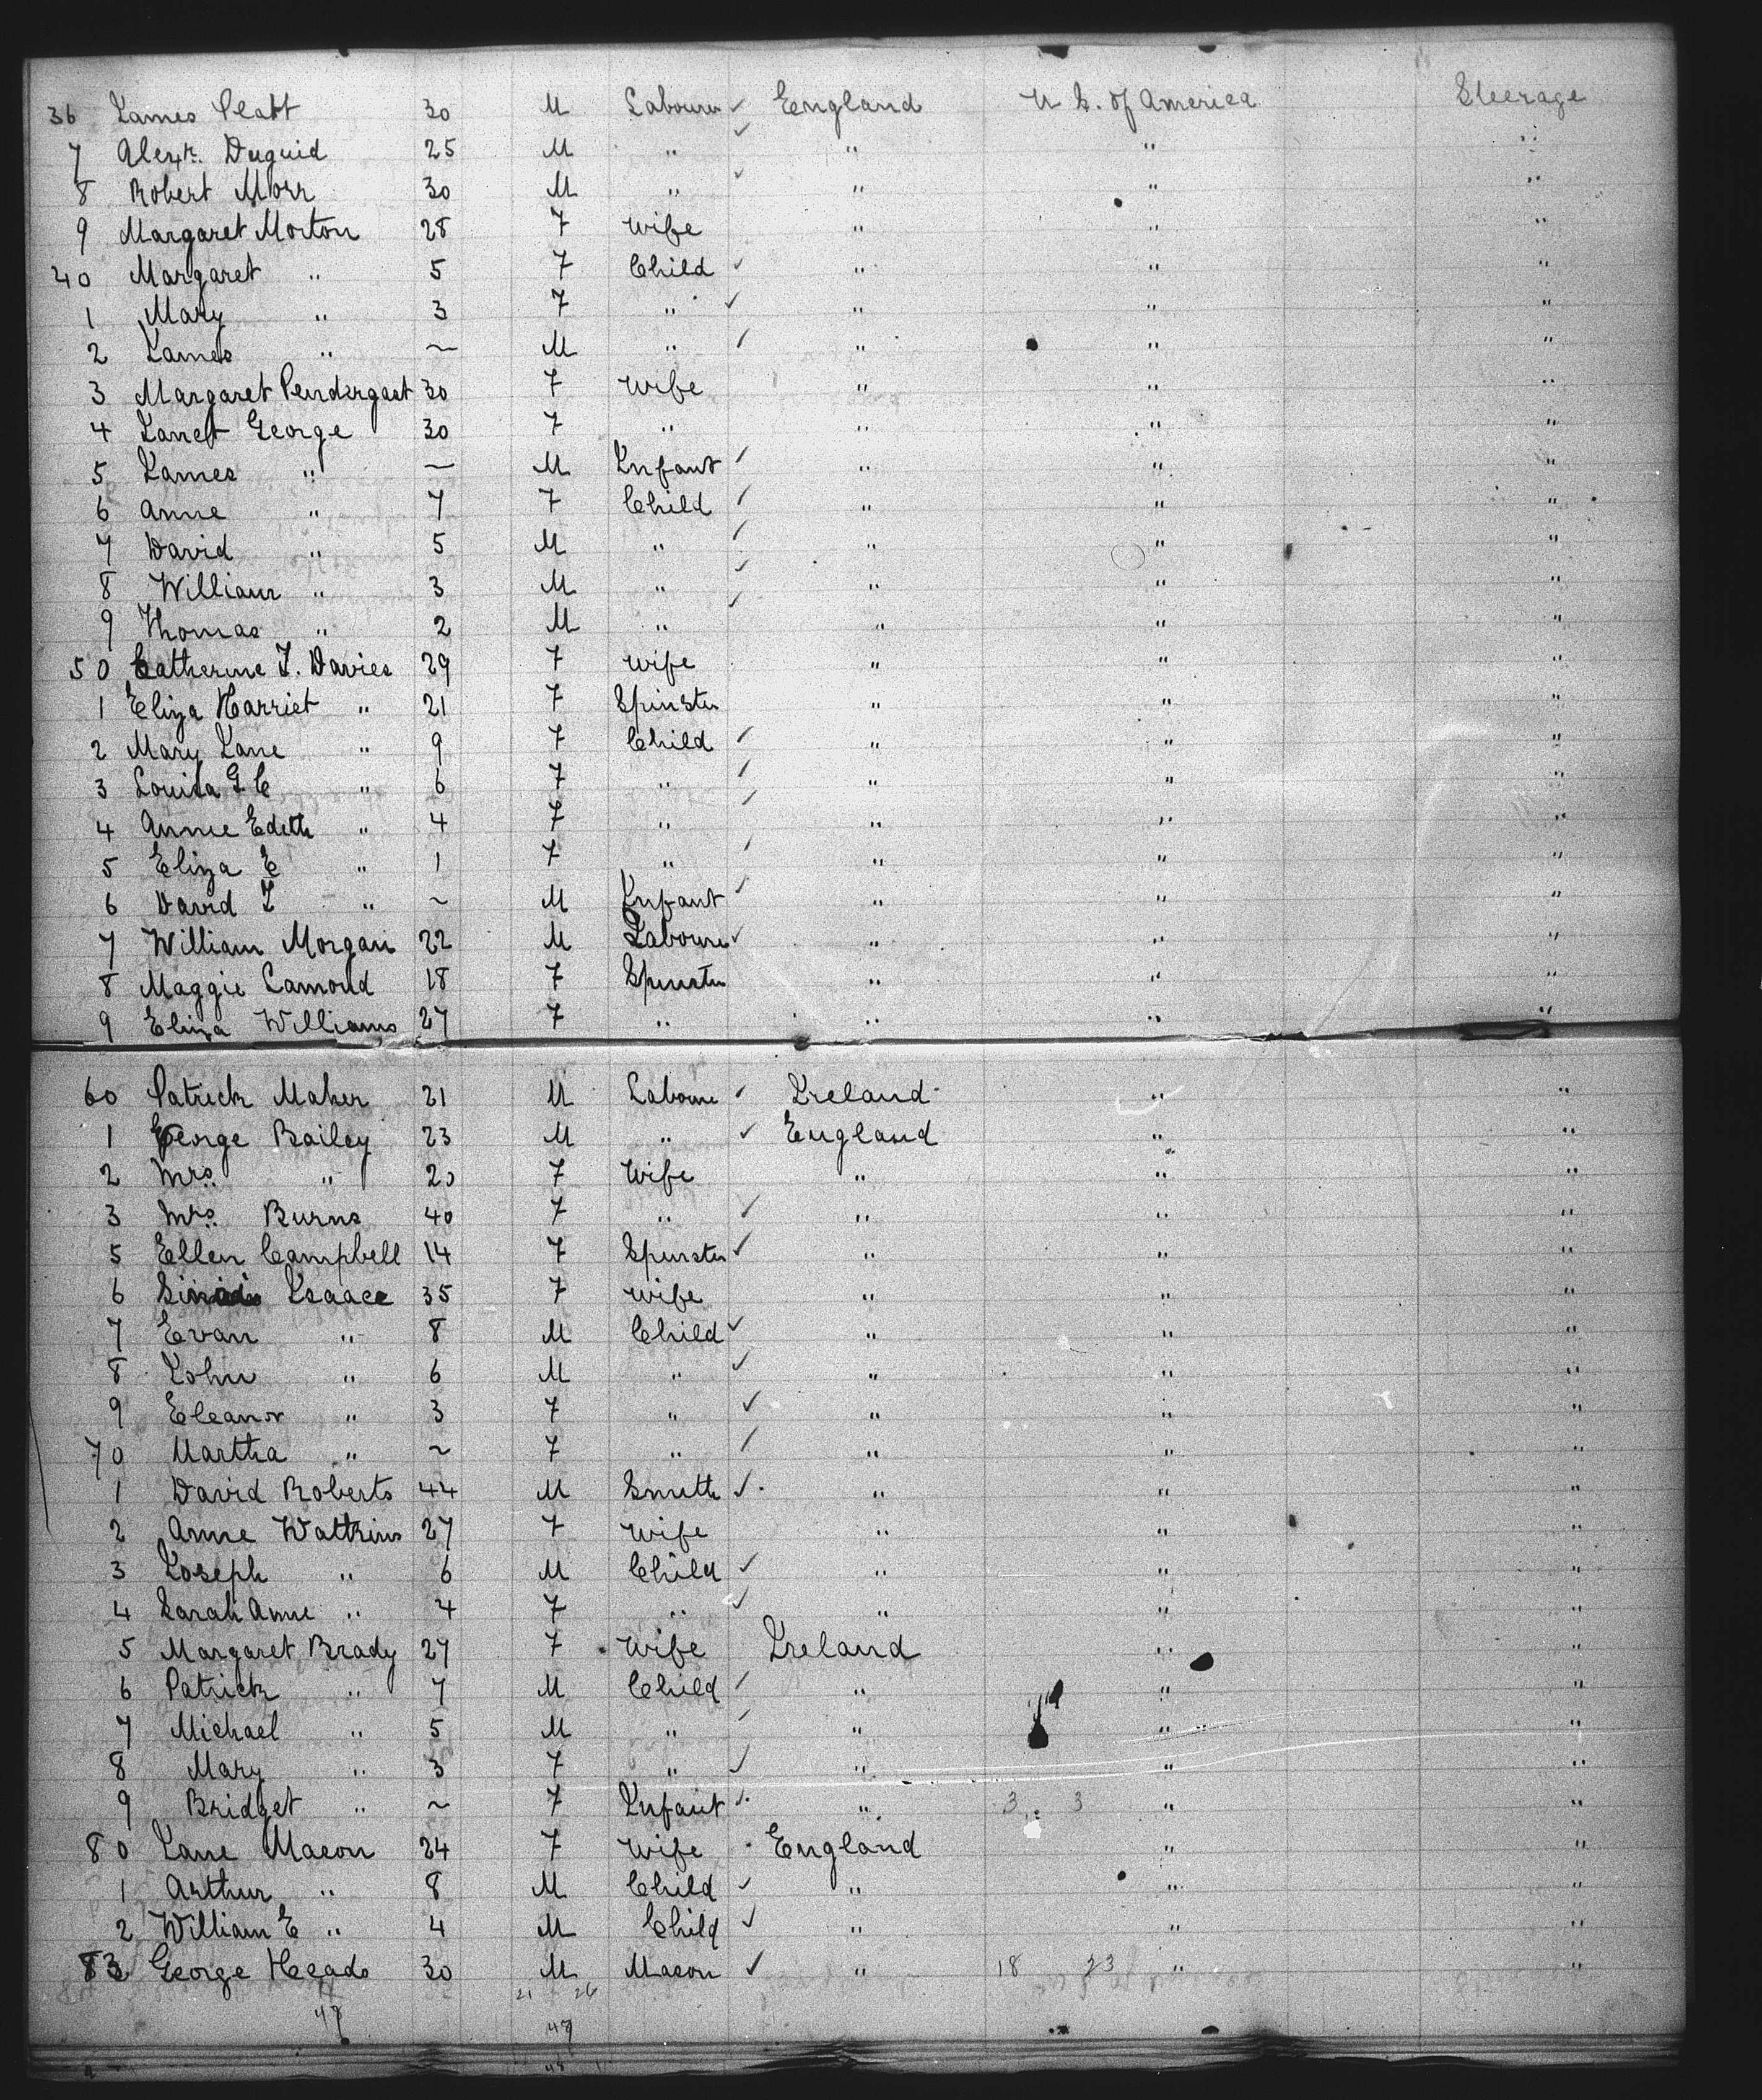 36 James Platt 30 M Labourer ✓ England U S. of America Steerage
7 Alexr. Duguid 25 M " ✓ " " "
8 Robert Morr 30 M " ✓ " " "
9 Margaret Morton 28 F Wife " " "
40 Margaret " 5 F Child ✓ " " "
1 Mary " 3 F " ✓ " " "
2 James " ~ M " ✓ " " "
3 Margaret Pendergast 30 F Wife " " "
4 Janet George 30 F " " " "
5 James " ~ M Infant ✓ " " "
6 Anne " 7 F Child ✓ " " "
7 David " 5 M " ✓ " " "
8 William " 3 M " ✓ " " "
9 Thomas " 2 M " ✓ " " "
50 Catherine J. Davies 29 F Wife " " "
1 Eliza Harriet " 21 F Spinster " " "
2 Mary Jane " 9 F Child ✓ " " "
3 Louisa G C " 6 F " ✓ " " "
4 Annie Edith " 4 F " ✓ " " "
5 Eliza E " 1 F " ✓ " " "
6 David J " ~ M Infant ✓ " " "
7 William Morgan 22 M Labourer ✓ " " "
8 Maggie Lamond 18 F Spinster " " "
9 Eliza Williams 27 F " " " "
60 Patrick Maher 21 M Laborer ✓ Ireland " "
1 George Bailey 23 M " ✓ England " "
2 Mrs. " 20 F Wife " " "
3 Mrs. Burns 40 F " ✓ " " "
5 Ellen Campbell 14 F Spinster ✓ " " "
6 Isaacs 35 F Wife " " "
7 Evan " 8 M Child ✓ " " "
8 John " 6 M " ✓ " " "
9 Eleanor " 3 F " ✓ " " "
70 Martha " ~ F " ✓ " " "
1 David Roberts 44 M Smith ✓ " " "
2 Anne Watkins 27 F Wife " " "
3 Joseph " 6 M Child ✓ " " "
4 Sarah Anne " 4 F " ✓ " " "
5 Margaret Brady 27 F Wife Ireland " "
6 Patrick " 7 M Child ✓ " " "
7 Michael " 5 M " ✓ " " "
8 Mary " 3 F " ✓ " " "
9 Bridget " ~ F Infant ✓ " 3 3 " "
80 Jane Mason 24 F Wife England " "
1 Arthur " 8 M Child ✓ " " "
2 William E " 4 M Child ✓ " " "
83 George Heads 30 M Mason ✓ " 18 23 " "
21 26
47 47